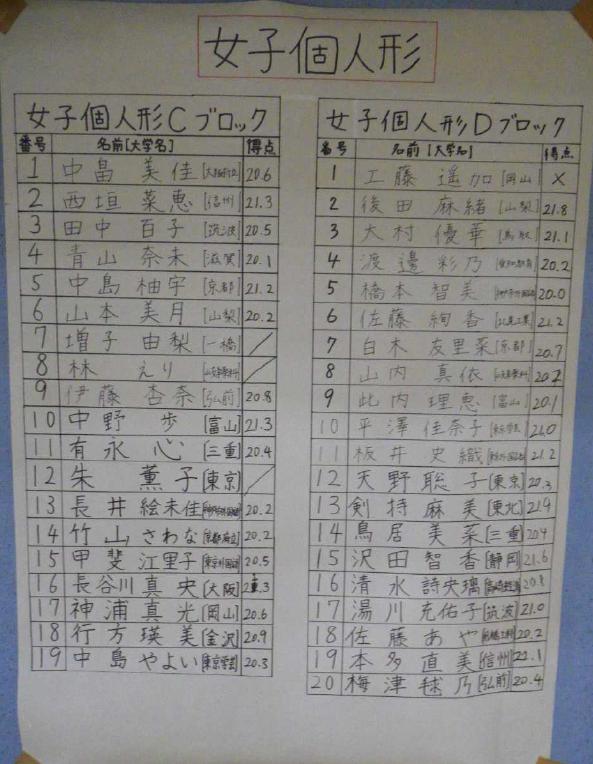 女子個人形
女子個人形Cブロック
番号 名前[大学名] 得点
1 中畠 美佳 20.6
2 西垣 菜恵 [信州] 21.3
3 田中 百子 [筑波] 20.5
4 青山 奈未 [滋賀] 20.1
5 中島 柚宇 [京都] 21.2
6 山本 美月 [山梨] 20.2
7 増子 由梨 [一橋]
8 林 えり
9 伊藤 杏奈 [弘前] 20.8
10 中野 歩 [富山] 21.3
11 有永 心 [三重] 20.4
12 朱 薫子 [東京]
13 長井 絵未佳 20.2
14 竹山 さわな [京都府立] 20.2
15 甲斐 江里子 [東京外国語] 20.5
16 長谷川 真央 [大阪]
17 神浦 真光 [岡山] 20.6
18 行方 瑛美 [金沢] 20.9
19 中島 やよい [東京学芸] 20.3
女子個人形Dブロック
番号 名前[大学名] 得点
1 工藤 遥加 [岡山] ×
2 後田 麻緒 [山梨] 21.8
3 大村 優華 [鳥取] 21.1
4 渡邉 彩乃 [愛知教育] 20.2
5 橋本 智美 20.0
6 佐藤 絢香 [北見工業] 21.2
7 白木 友里菜 [京都] 20.7
8 山内 真依 20.2
9 此内 理恵 [富山] 20.1
10 平澤 佳奈子 [東京学芸] 21.0
11 板井 史織 [東京外国語] 21.2
12 天野 聡子 [東京] 20.3
13 剣持 麻美 [東北] 21.9
14 鳥居 美菜 [三重] 20.4
15 沢田 智香 [静岡] 21.6
16 清水 詩央璃 [高崎経済] 20.8
17 湯川 充佑子 [筑波] 21.0
18 佐藤 あや 20.2
19 本多 直美 [信州] 21.1
20 梅津 毬乃 [弘前] 20.4